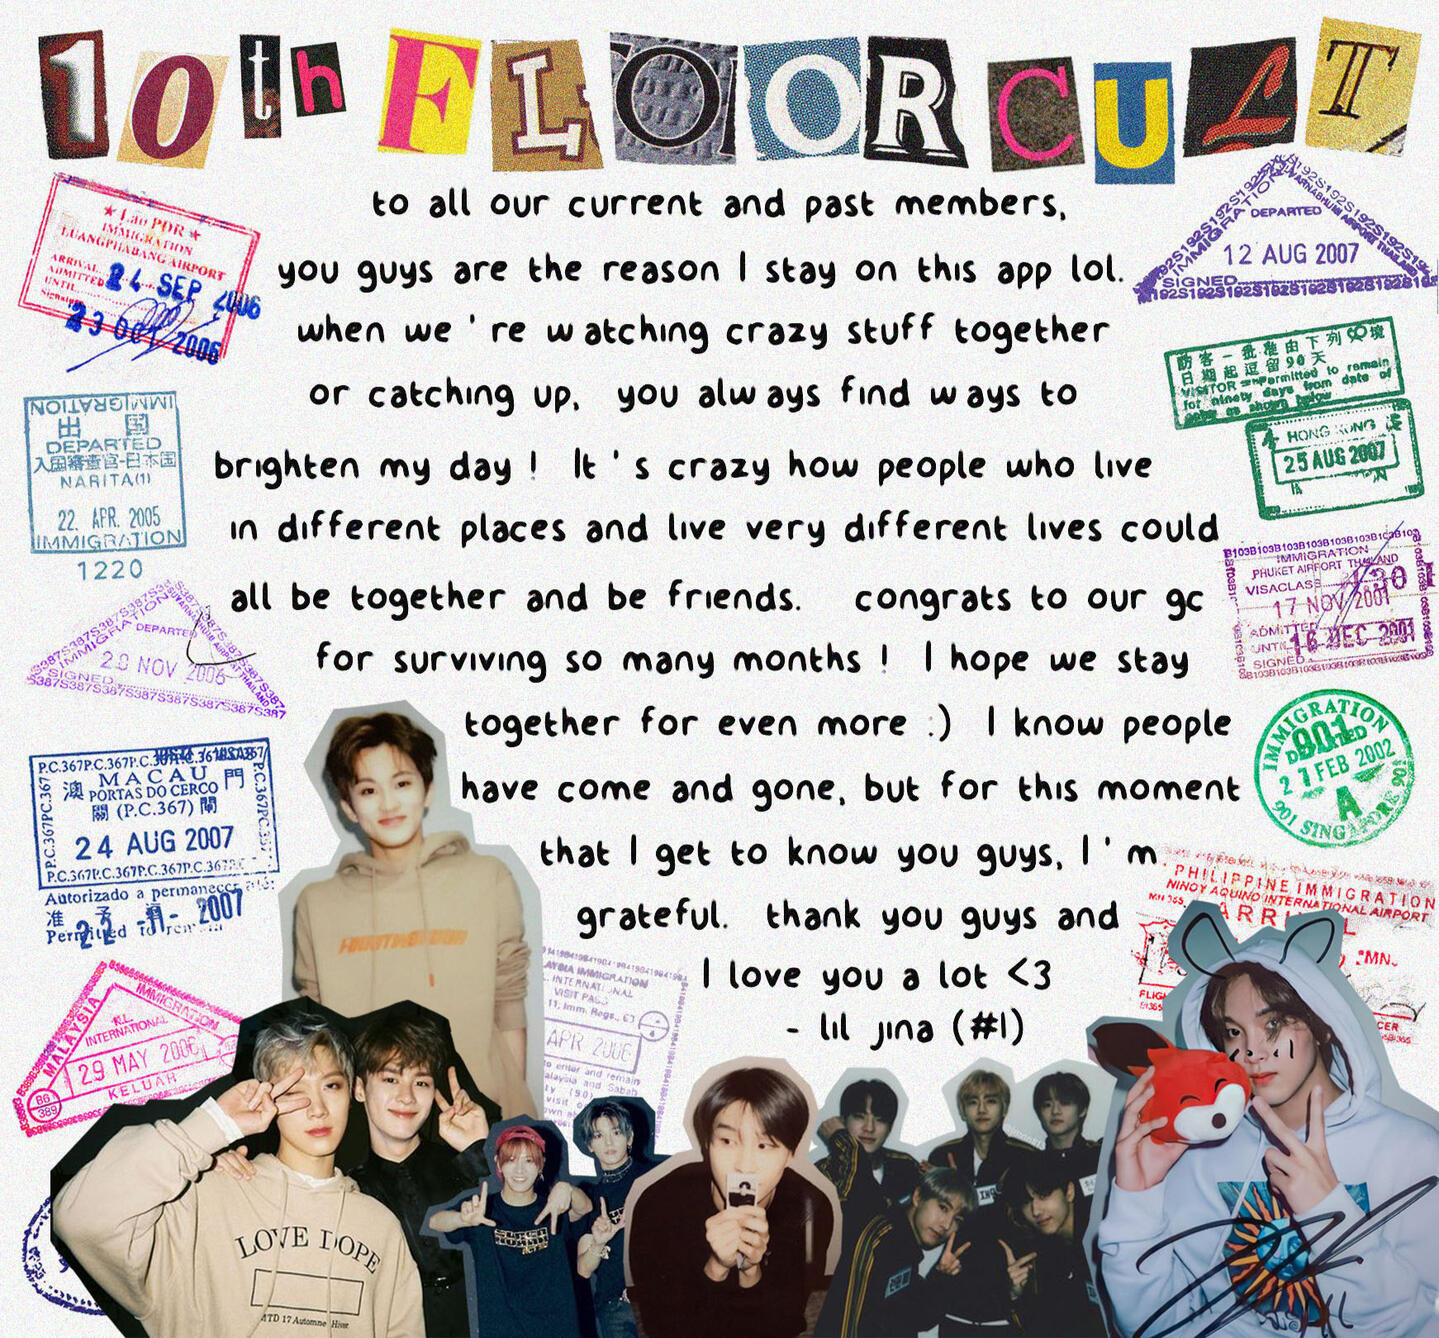 10th FLOOR CULT
to all our current and past members,
you guys are the reason I stay on this app lol.
when we're watching crazy stuff together
or catching up, you always find ways to
brighten my day! It's crazy how people who live
in different places and live very different lives could
all be together and be friends. congrats to our gc
for surviving so many months! I hope we stay
together for even more :) I know people
have come and gone, but for this moment
that I get to know you guys, I'm
grateful. thank you guys and
I love you a lot <3
- lil jina (#1)
★ Lao PDR ★
IMMIGRATION
LUANGPHABANG AIRPORT
ARRIVAL
ADMITTED
UNTIL
24 SEP 2006
23 OCT 2006
IMMIGRATION
出 国
DEPARTED
入国審査官-日本国
NARITA(1)
22. APR. 2005
IMMIGRATION
1220
IMMIGRATION
DEPARTED
20 NOV 2006
SIGNED
S387S387S387S387S387S387S387
P.C.367P.C.367P.C.
MACAU
澳 門
PORTAS DO CERCO
關 (P.C.367) 閘
24 AUG 2007
P.C.367P.C.367P.C.367
Autorizado a permanecer até:
准 予
2007
Permitted to remain
MALAYSIA
IMMIGRATION
K.L.
INTERNATIONAL
29 MAY 2006
KELUAR
B6
389
192S192S192S192
IMMIGRATION
DEPARTED
12 AUG 2007
SIGNED
192S192S192S192S192S192S192S192S
訪客一批准由下列 境
日期起逗留90天
VISITOR - Permitted to remain
for ninety days from date of
HONG KONG
25 AUG 2007
B103B103B103B103B103B103B103
IMMIGRATION
PHUKET AIRPORT THAILAND
VISACLASS
17 NOV 2001
ADMITTED
16 DEC 2001
UNTIL
SIGNED
IMMIGRATION
901
27 FEB 2002
A
901 SINGAPORE 901
PHILIPPINE IMMIGRATION
NINOY AQUINO INTERNATIONAL AIRPORT
MALAYSIA IMMIGRATION
VISIT PASS
APR 2006
to enter and remain
LOVE DOPE
MTD 17 Automne Hiver